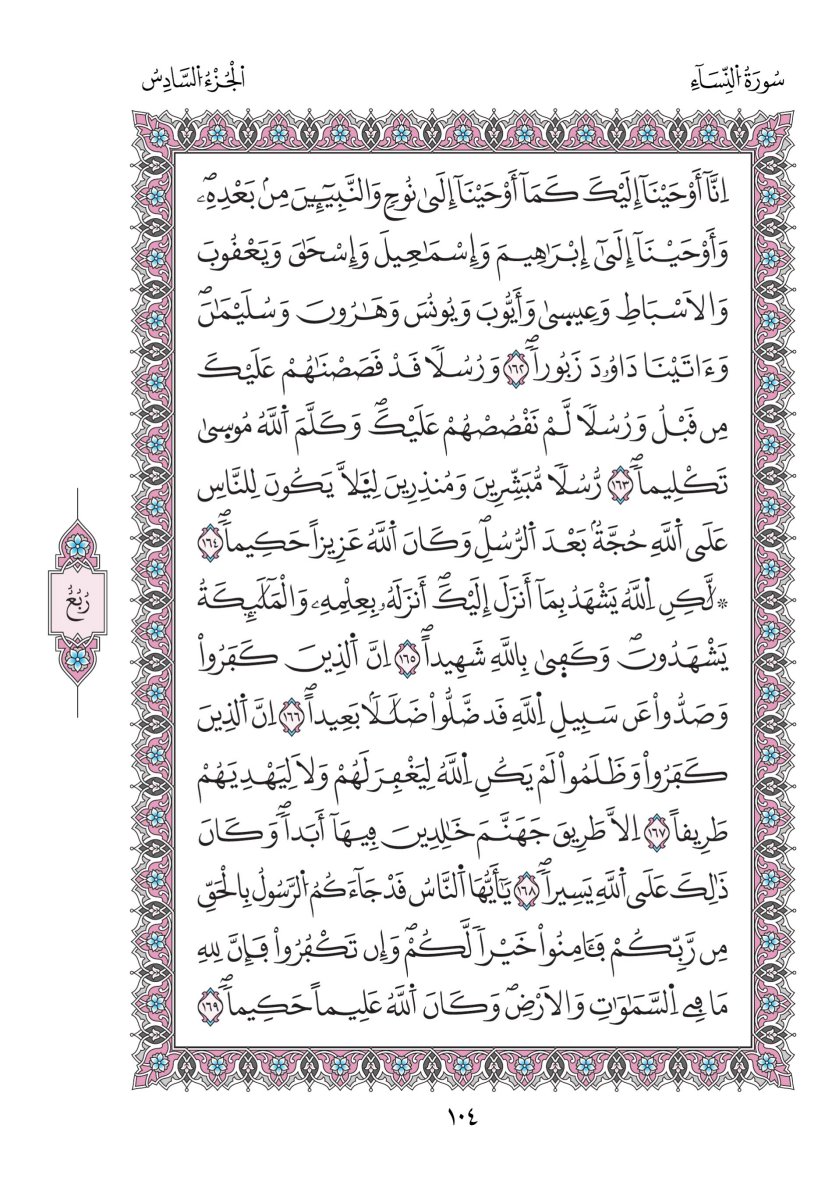 سُورَةُ اُ۬لنِّسَآءِ
اُ۬لْجُزْءُ اُ۬لسَّادِسُ
اِنَّآ أَوْحَيْنَآ إِلَيْكَ كَمَآ أَوْحَيْنَآ إِلَىٰ نُوحٖ وَالنَّبِيٓـِٕينَ مِنۢ بَعْدِهِۦۖ
وَأَوْحَيْنَآ إِلَىٰٓ إِبْرَٰهِيمَ وَإِسْمَٰعِيلَ وَإِسْحَٰقَ وَيَعْقُوبَ
وَالَاسْبَاطِ وَعِيسىٰ وَأَيُّوبَ وَيُونُسَ وَهَٰرُونَ وَسُلَيْمَٰنَۖ
وَءَاتَيْنَا دَاوُۥدَ زَبُوراٗۖ ١٦٢ وَرُسُلاٗ قَدْ قَصَصْنَٰهُمْ عَلَيْكَ
مِن قَبْلُ وَرُسُلاٗ لَّمْ نَقْصُصْهُمْ عَلَيْكَۖ وَكَلَّمَ اَ۬للَّهُ مُوسىٰ
تَكْلِيماٗۖ ١٦٣ رُّسُلاٗ مُّبَشِّرِينَ وَمُنذِرِينَ لِيَلَّا يَكُونَ لِلنَّاسِ
عَلَى اَ۬للَّهِ حُجَّةُۢ بَعْدَ اَ۬لرُّسُلِۖ وَكَانَ اَ۬للَّهُ عَزِيزاً حَكِيماٗۖ ١٦٤
۞لَّٰكِنِ اِ۬للَّهُ يَشْهَدُ بِمَآ أَنزَلَ إِلَيْكَۖ أَنزَلَهُۥ بِعِلْمِهِۦ وَالْمَلَٰٓئِكَةُ
يَشْهَدُونَۖ وَكَفىٰ بِاللَّهِ شَهِيداًۖ ١٦٥ اِنَّ اَ۬لذِينَ كَفَرُواْ
وَصَدُّواْ عَن سَبِيلِ اِ۬للَّهِ قَد ضَّلُّواْ ضَلَٰلاَۢ بَعِيداًۖ ١٦٦ اِنَّ اَ۬لذِينَ
كَفَرُواْ وَظَلَمُواْ لَمْ يَكُنِ اِ۬للَّهُ لِيَغْفِرَ لَهُمْ وَلَا لِيَهْدِيَهُمْ
طَرِيقاً ١٦٧ اِلَّا طَرِيقَ جَهَنَّمَ خَٰلِدِينَ فِيهَآ أَبَداٗۖ وَكَانَ
ذَٰلِكَ عَلَى اَ۬للَّهِ يَسِيراٗۖ ١٦٨ يَٰٓأَيُّهَا اَ۬لنَّاسُ قَدْ جَآءَكُمُ اُ۬لرَّسُولُ بِالْحَقِّ
مِن رَّبِّكُمْ فَـَٔامِنُواْ خَيْراٗ لَّكُمْۖ وَإِن تَكْفُرُواْ فَإِنَّ لِلهِ
مَا فِے اِ۬لسَّمَٰوَٰتِ وَالَارْضِۖ وَكَانَ اَ۬للَّهُ عَلِيماً حَكِيماٗۖ ١٦٩
رُبُعُ
١٠٤